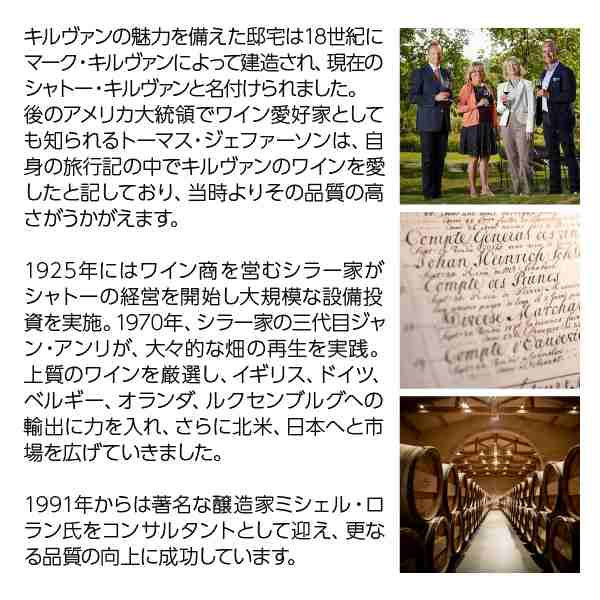 キルヴァンの魅力を備えた邸宅は18世紀に
マーク・キルヴァンによって建造され、現在の
シャトー・キルヴァンと名付けられました。
後のアメリカ大統領でワイン愛好家として
も知られるトーマス・ジェファーソンは、自
身の旅行記の中でキルヴァンのワインを愛
したと記しており、当時よりその品質の高
さがうかがえます。
1925年にはワイン商を営むシラー家が
シャトーの経営を開始し大規模な設備投
資を実施。1970年、シラー家の三代目ジャ
ン・アンリが、大々的な畑の再生を実践。
上質のワインを厳選し、イギリス、ドイツ、
ベルギー、オランダ、ルクセンブルグへの
輸出に力を入れ、さらに北米、日本へと市
場を広げていきました。
1991年からは著名な醸造家ミシェル・ロ
ラン氏をコンサルタントとして迎え、更な
る品質の向上に成功しています。
Compte General
Johan Heinrich
Compte
Compte